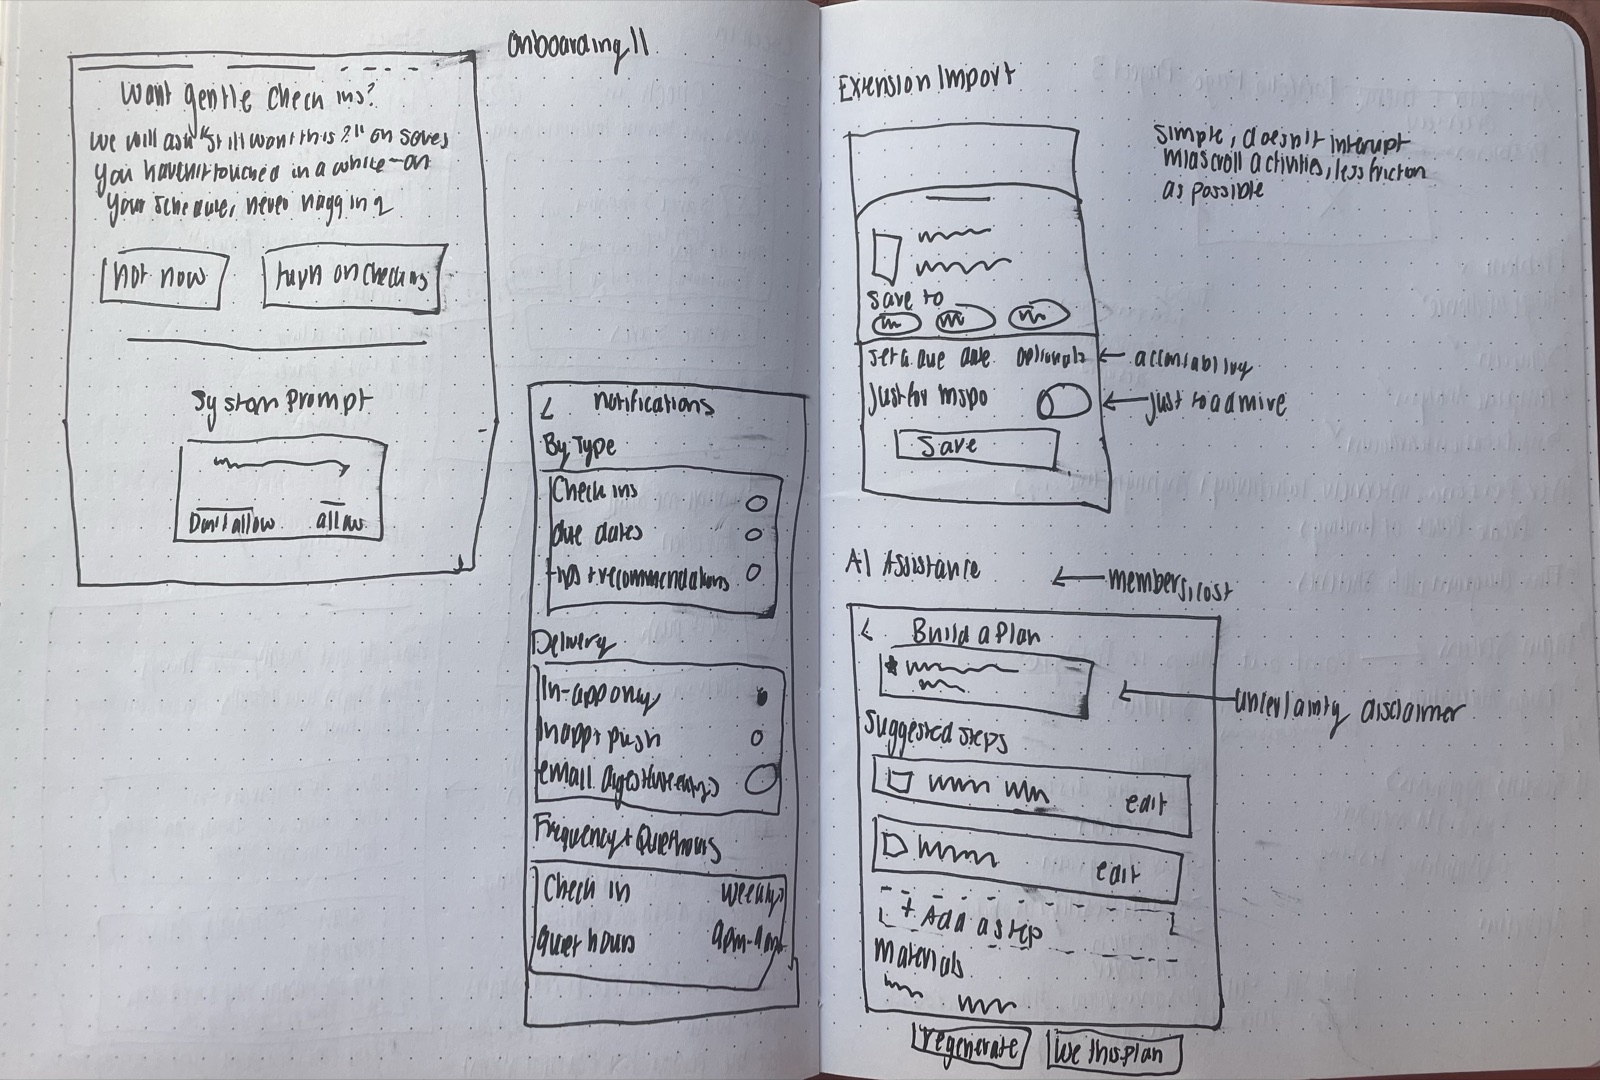 Onboarding 11
Want gentle check ins?
We will ask "still want this?" on saves
you haven't touched in a while - on
your schedule, never nagging
not now
turn on check ins
System Prompt
Don't allow
allow
< notifications
By Type
Check ins
due dates
tips + recommendations
Delivery
In-app only
In app + push
email digest (weekly)
Frequency + Quiet hours
Check in weekly
quiet hours 9pm-9am
Extension Import
simple, doesn't interupt
midscroll activities, less friction
as possible
save to
set a due date optional
accountability
Just for inspo
just to admire
Save
AI Assistance
members, cost
< Build a Plan
uncertainty disclaimer
Suggested steps
edit
edit
+ Add a step
Materials
regenerate
Use this plan